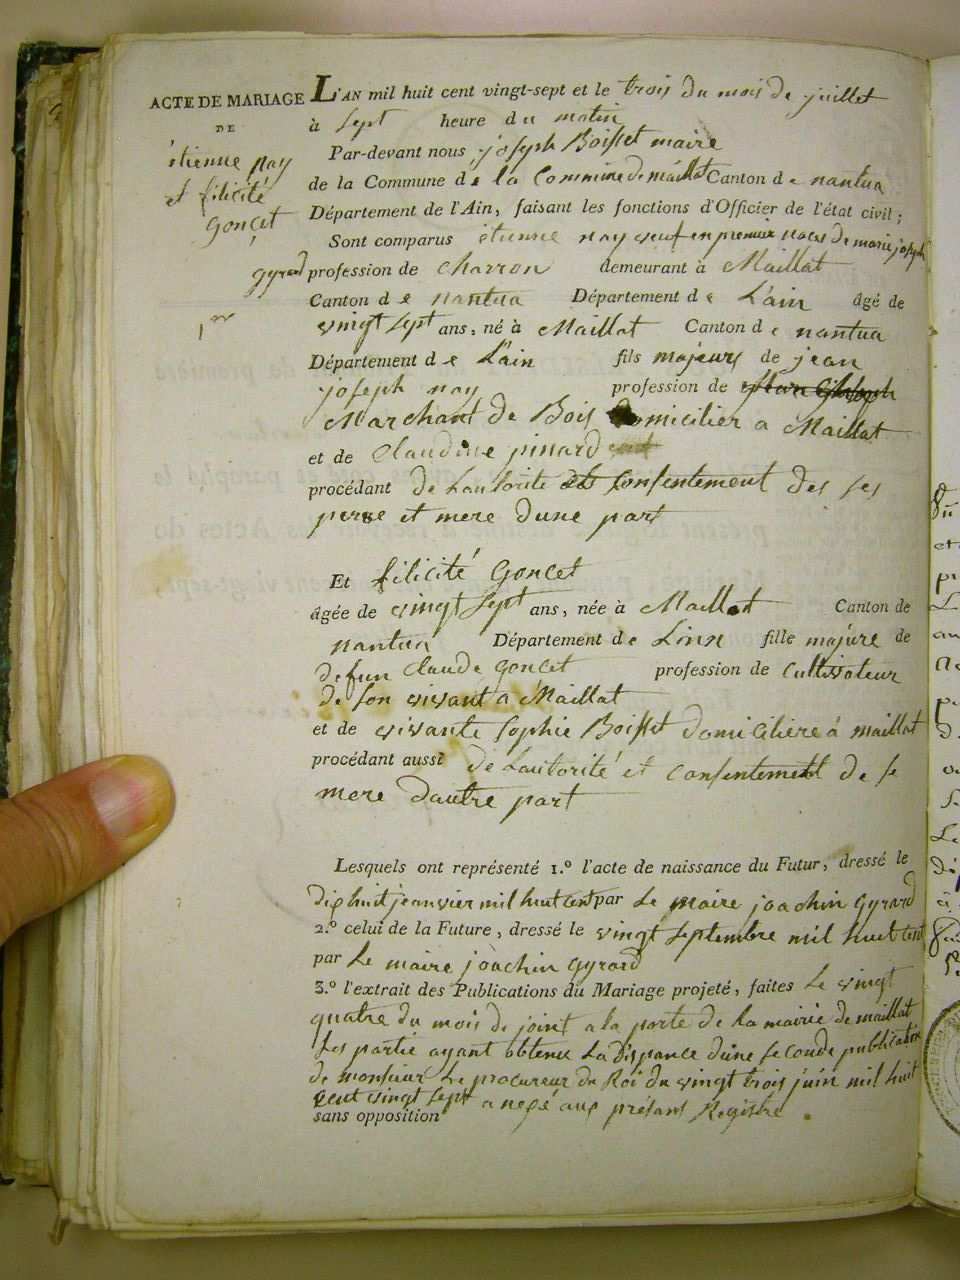 ACTE DE MARIAGE
DE
étienne nay
et félicité
Goncet
1er
L'AN mil huit cent vingt-sept et le trois du mois de juillet
à sept heure du matin
Par-devant nous joseph Boisset maire
de la Commune de la Commune de maillat Canton de nantua
Département de l'Ain, faisant les fonctions d'Officier de l'état civil ;
Sont comparus étienne nay veuf en premier noces de marie joseph
gyrard profession de Charron demeurant à Maillat
Canton de nantua Département de L'ain âgé de
vingt sept ans, né à Maillat Canton de nantua
Département de L'ain fils majeurs de jean
joseph nay profession de
Marchant de Bois domicilier a Maillat
et de Claudine pinard
procédant de Lautorite et Consentement des ses
perse et mere dune part
Et félicité Goncet
âgée de vingt sept ans, née à Maillat Canton de
nantua Département de Linn fille majure de
defun Claude Goncet profession de Cultivateur
de son vivant a Maillat
et de vivante Sophie Boisset domiciliere à maillat
procédant aussi de Lautorité et consentement de se
mere dautre part
Lesquels ont représenté 1.º l'acte de naissance du Futur, dressé le
dix huit jeanvier mil huit cent par Le maire joachin Gyrard
2.º celui de la Future, dressé le vingt septembre mil huit cent
par Le maire joachin Gyrard
3.º l'extrait des Publications du Mariage projeté, faites Le vingt
quatre du mois de joint a la porte de la mairie de maillat
Les partie ayant obtenu La dispance dune seconde publication
de monsieur Le procureur du Roi du vingt trois juin mil huit
cent vingt sept anexé aux présant Registre
sans opposition